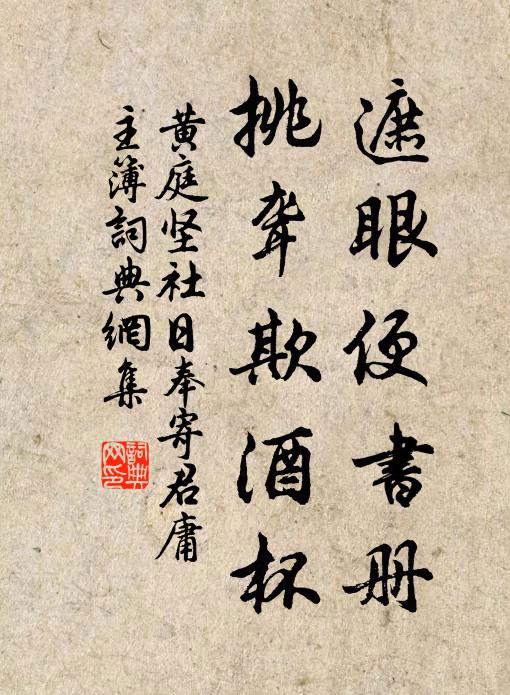 遮眼便書册
挑聋欺酒杯
黄庭坚社日奉寄君庸
主簿詞典網集
詞典网印